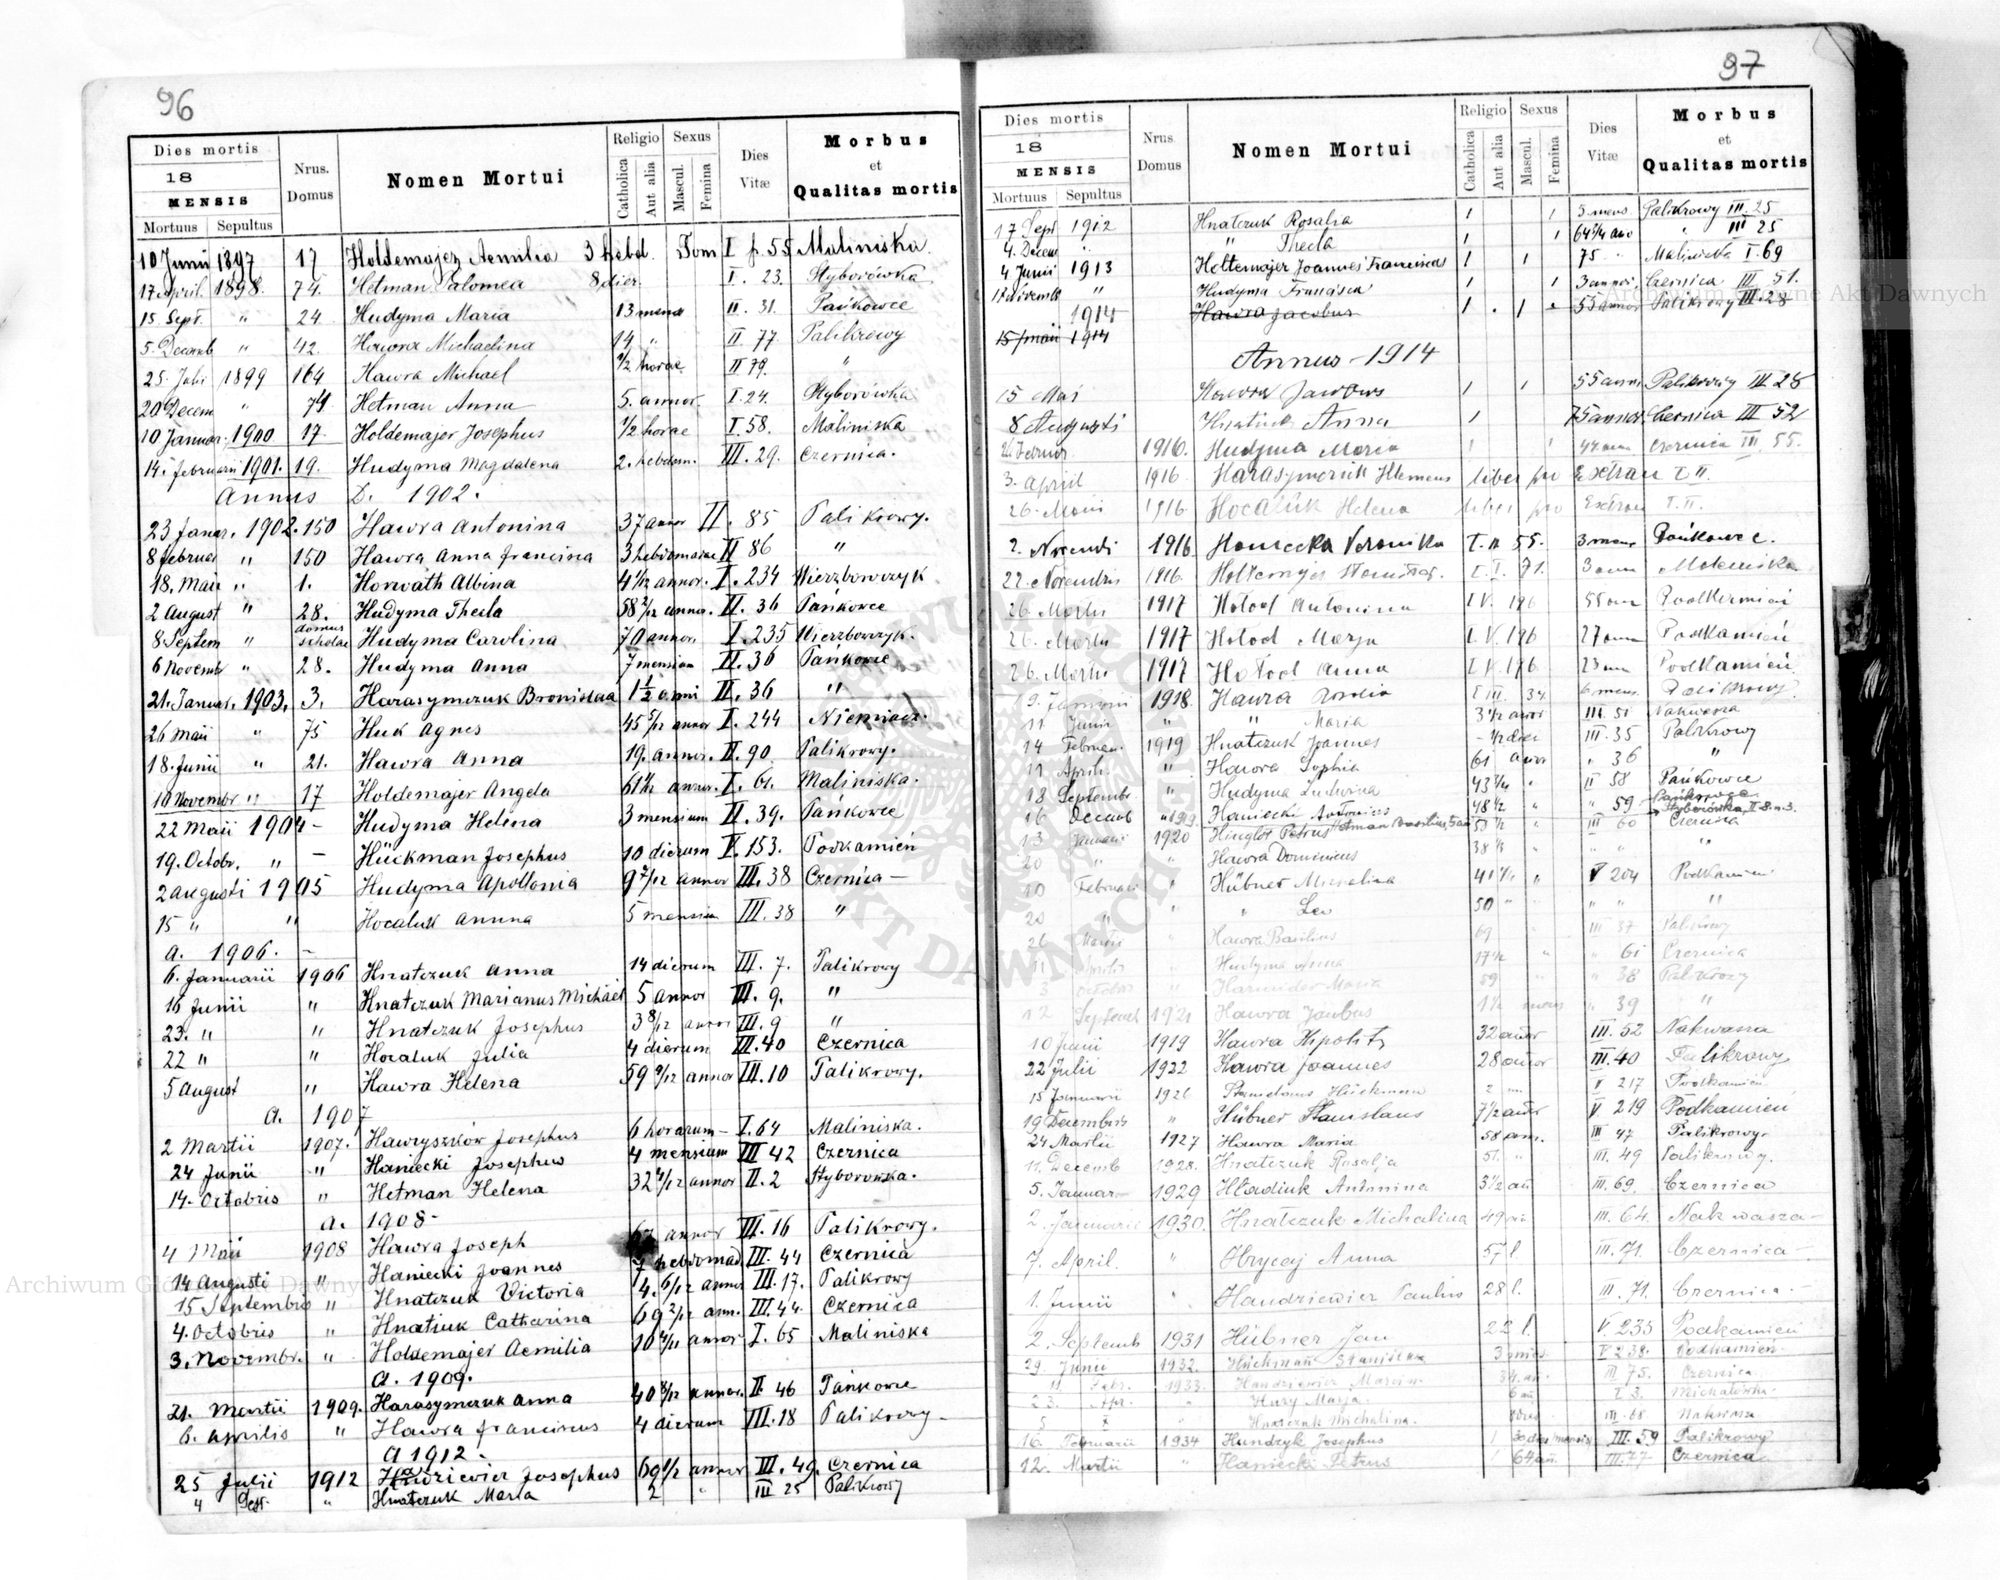 96
Dies mortis
18
MENSIS
Mortuus Sepultus
Nrus. Domus
Nomen Mortui
Religio
Catholica
Aut alia
Sexus
Mascul.
Femina
Dies Vitæ
Morbus et Qualitas mortis
10 Junii 1897 17 Holdemajer Aemilia 3 hebd. Tom I p. 55 Maliniska.
17 april. 1898. 74. Hetman Salomea 8 dier. I. 23. Styborówka
15 Sept. " 24 Hudyma Maria 13 mens II. 31. Pańkowce
5. Decemb " 42. Hawra Michaelina 14 " II 77. Palikrowy
25. Julii 1899 164 Hawra Michael 1/2 horae II 79. "
20 Decem " 74 Hetman Anna 5. annor. I. 24. Styborówka
10 Januar. 1900 17. Holdemajer Josephus 1/2 horae I. 58. Maliniska
14. februarii 1901. 19. Hudyma Magdalena 2. hebdom. III. 29. Czernica.
Annus D. 1902.
23 Januar. 1902. 150 Hawra Antonina 37 annor II. 85 Palikrowy.
8 februar " 150 Hawra Anna francisca 3 hebdomadae II 86 "
18. Maii " 1. Horwath Albina 4 1/12 annor. I. 234 Wierzbowczyk
2 August " 28. Hudyma Thecla 58 2/12 annor. II. 36 Pańkowce
8 Septem " domus scholae Hudyma Carolina 70 annor. I. 235 Wierzbowczyk.
6 Novemb " 28. Hudyma Anna 7 mensium II. 36 Pańkowce
21. Januar. 1903. 3. Harasymczuk Bronislaa 1 1/2 anni II. 36 "
26 Maii " 75 Huk Agnes 45 5/12 annor I. 244 Niemiacz.
18. Junii " 21. Hawra Anna 19. annor. II. 90 Palikrowy.
10 Novembr. " 17 Holdemajer Angela 61 1/2 annor. I. 61. Maliniska.
22 Maii 1904 - Hudyma Helena 3 mensium II. 39. Pańkowce
19. Octobr. " - Hückman Josephus 10 dierum V. 153. Podkamień
2 augusti 1905 Hudyma Apollonia 9 7/12 annor III. 38 Czernica -
15 " " Hocaluk Annna 5 mensium III. 38 "
a. 1906. -
6. Januarii 1906 Hnatczuk Anna 14 dierum III. 7. Palikrowy
16 Junii " Hnatczuk Marianus Michael 5 annor III. 9. "
23. " " Hnatczuk Josephus 3 8/12 annor III. 9 "
22 " " Hocaluk Julia 4 dierum III. 40 Czernica
5 August " Hawra Helena 59 9/12 annor III. 10 Palikrowy.
a. 1907
2 Martii 1907. Hawryszków Josephus 6 horarum - I. 64 Maliniska.
24 Junii " Haniecki Josephus 4 mensium III 42 Czernica
14. Octobris " Hetman Helena 32 4/12 annor II. 2 Styborowka.
a. 1908 -
4 Maii 1908 Hawra Joseph annor III. 16 Palikrowy.
14 Augusti " Haniecki Joannes 7 hebdomad III. 44 Czernica
15 Septembris " Hnatczuk Victoria 4. 6/12 annor III. 17. Palikrowy
4. Octobris " Hnatiuk Catharina 69 2/12 ann. III. 44. Czernica
3. Novembr. " Holdemajer Aemilia 10 4/12 annor I. 65 Maliniska
a. 1909.
21. Martii 1909. Harasymczuk Anna 40 8/12 annor. II. 46 Pańkowce
6. Aprilis " Hawra franciscus 4 dierum III. 18 Palikrowy -
a 1912.
25 Julii 1912 Josephus 69 1/2 annor III. 49. Czernica
" Sept. " Hnatczuk Maria 2 " III 25 Palikrowy
97
Dies mortis
18
MENSIS
Mortuus Sepultus
Nrus Domus
Nomen Mortui
Religio
Catholica
Aut alia
Sexus
Mascul.
Femina
Dies Vitæ
Morbus et Qualitas mortis
17 Sept 1912 Hnatczuk Rosalia 1 1 5 mens Palikrowy III. 25
4. Decem " " Thecla 1 1 64 3/4 ann " III 25
4 Junii 1913 Holtemajer Joannes Franciscus 1 1 75 " Maliniska I. 69
17 Novemb " Hudyma Francisca 1 1 3 annor. Czernica III. 51.
1914
15 Maii 1914 Hawra Jacobus 1 1 55 annor Palikrowy III. 28
Annus - 1914
15 Maii Hawra Jacobus 1 1 55 annor Palikrowy III 28
8 Augusti Hnatiuk Anna 1 75 annor Czernica III 52
Februar 1916. Hudyma Maria 1 1 44 ann Czernica III. 55.
3. April 1916 Harasymczuk Klemens liber pro Extran T. II.
26. Maii 1916 Hocaluk Helena liber pro Extran T. II.
2. Novemb 1916 Haniecka Veronika T. II 55. 3 mens Pańkowce.
22. Novembris 1916. T. I. 71. 3 ann Maleniska
26. Martii 1917 Hołod Antonina T. V. 196 55 ann Podkamień
26. Martii 1917 Hołod Marja T. V. 196 27 ann Podkamień
26. Martii 1917 Hołod Anna T. V. 196 23 ann Podkamień
19. Januarii 1918. Hawra T III. 34. 6 mens. Palikrowy.
11 Junii " " Maria 3 1/2 annor III. 51 Nakwasza
14 Februar. 1919 Hnatczuk Joannes - 1/2 diei III. 35 Palikrowy
11 Aprili " Hawra Sophia 61 annor " 36 "
18 Septembr. " Hudyma Ludwina 43 3/4 " II 58 Pańkowce
16 Decemb " 1919 Haniecki Antonius 48 1/2 " " 59 Pańkowce
Hetman Basilius Styborówka II. 8. n 3.
13 Januarii 1920 Hinglot Petrus 53 1/2 " III 60 Czernica
20 " " Hawra Dominicus 38 " " " "
10 Februarii " Hübner Michalina 41 " V 204 Podkamień
20 " " " Leo 50 " " " "
26 Martii " Hawra Basilius 69 III 37 Palikrowy
11 Aprilis " Hudyma Anna 17 1/2 " " 61 Czernica
3 Octobris " Maria 59 " " 38 Palikrowy
12 Septemb 1921 Hawra Jacobus 1 1/2 mens " 39 "
10 Junii 1919 Hawra Hipolit 32 annor III. 52 Nakwasza
22 Julii 1922 Hawra Joannes 28 annor III. 40 Palikrowy
15 Januarii 1926 Stanislaus Hückman 2 V 217 Podkamień
19 Decembris " Hübner Stanislaus 7 1/2 annor V. 219 Podkamień
24 Martii 1927 Hawra Maria 58 ann. III 47 Palikrowy.
11. Decemb 1928. Hnatczuk Rosalja 51. " III. 49 Palikrowy.
5. Januar 1929 Hładiuk Antonina 3 1/2 an III. 69. Czernica
2. Januarii 1930. Hnatczuk Michalina 49 III. 64. Nakwasza -
7. April. " Hrycaj Anna 57 l III. 71. Czernica -
1. Junii " Handziewier Paulus 28 l. III. 71. Czernica -
2. Septemb 1931 Hübner Jan 22 l. V. 235 Podkamień
29. Junii 1932. Hückman 3 mies. V 238. Podkamień
11 Febr. 1933. Handziewicz Marcin 34. an. III. 75. Czernica.
23. Apr. " Hury Marja. 6 an I 3. Michałówka.
5 " Hnatczuk Michalina. III. 68. Nakwasza
16. Februarii 1934 Hundzyk Josephus 1 III. 59 Palikrowy
12. Martii " Haniecki Petrus 1 64 an. III. 77. Czernica
Archiwum Główne Akt Dawnych